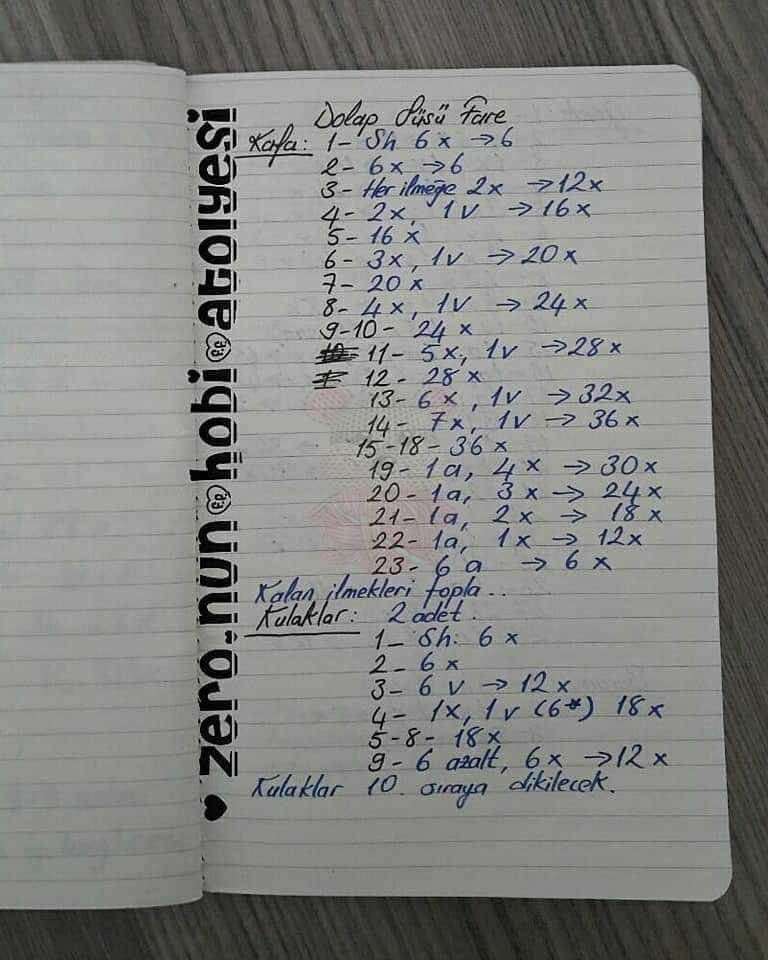 Dolap Süsü Fare
Kafa: 1- Sh 6x →6
2- 6x →6
3- Her ilmeğe 2x →12x
4- 2x, 1v →16x
5- 16x
6- 3x, 1v →20x
7- 20x
8- 4x, 1v →24x
9-10- 24x
11- 5x, 1v →28x
12- 28x
13- 6x, 1v →32x
14- 7x, 1v →36x
15-18- 36x
19- 1a, 4x →30x
20- 1a, 3x → 24x
21- 1a, 2x → 18x
22- 1a, 1x → 12x
23- 6a → 6x
Kalan ilmekleri topla..
Kulaklar: 2 adet.
1- Sh: 6x
2- 6x
3- 6v → 12x
4- 1x, 1v (6*) 18x
5-8- 18x
9- 6 azalt, 6x →12x
Kulaklar 10. sıraya dikilecek.
zero.nun hobi atolyesi